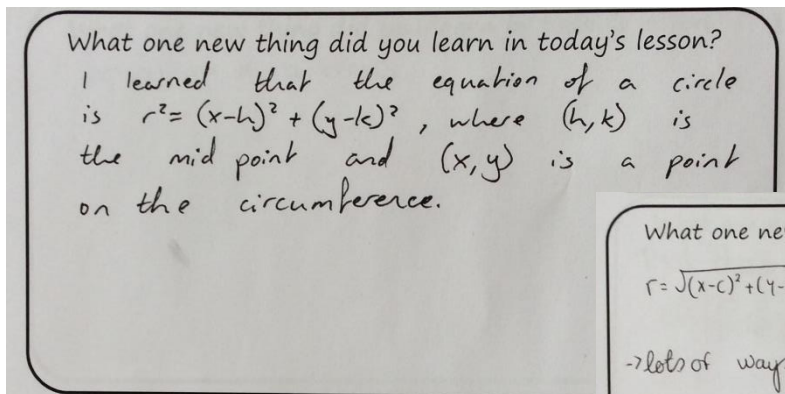 What one new thing did you learn in today's lesson?
I learned that the equation of a circle
is r²= (x-h)² + (y-k)² , where (h,k) is
the mid point and (x,y) is a point
on the circumference.
What one ne
r= √(x-c)²+(y-
→ lots of way